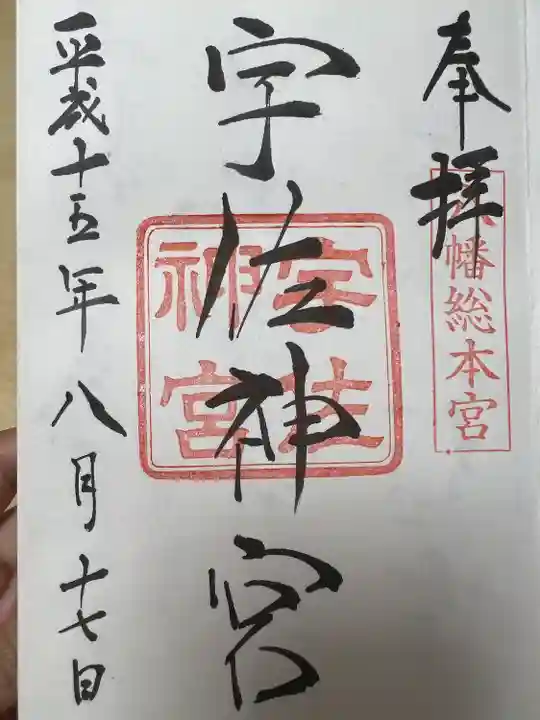 奉拝
八幡総本宮
宇佐神宮
宇佐
神宮
平成十五年八月十七日